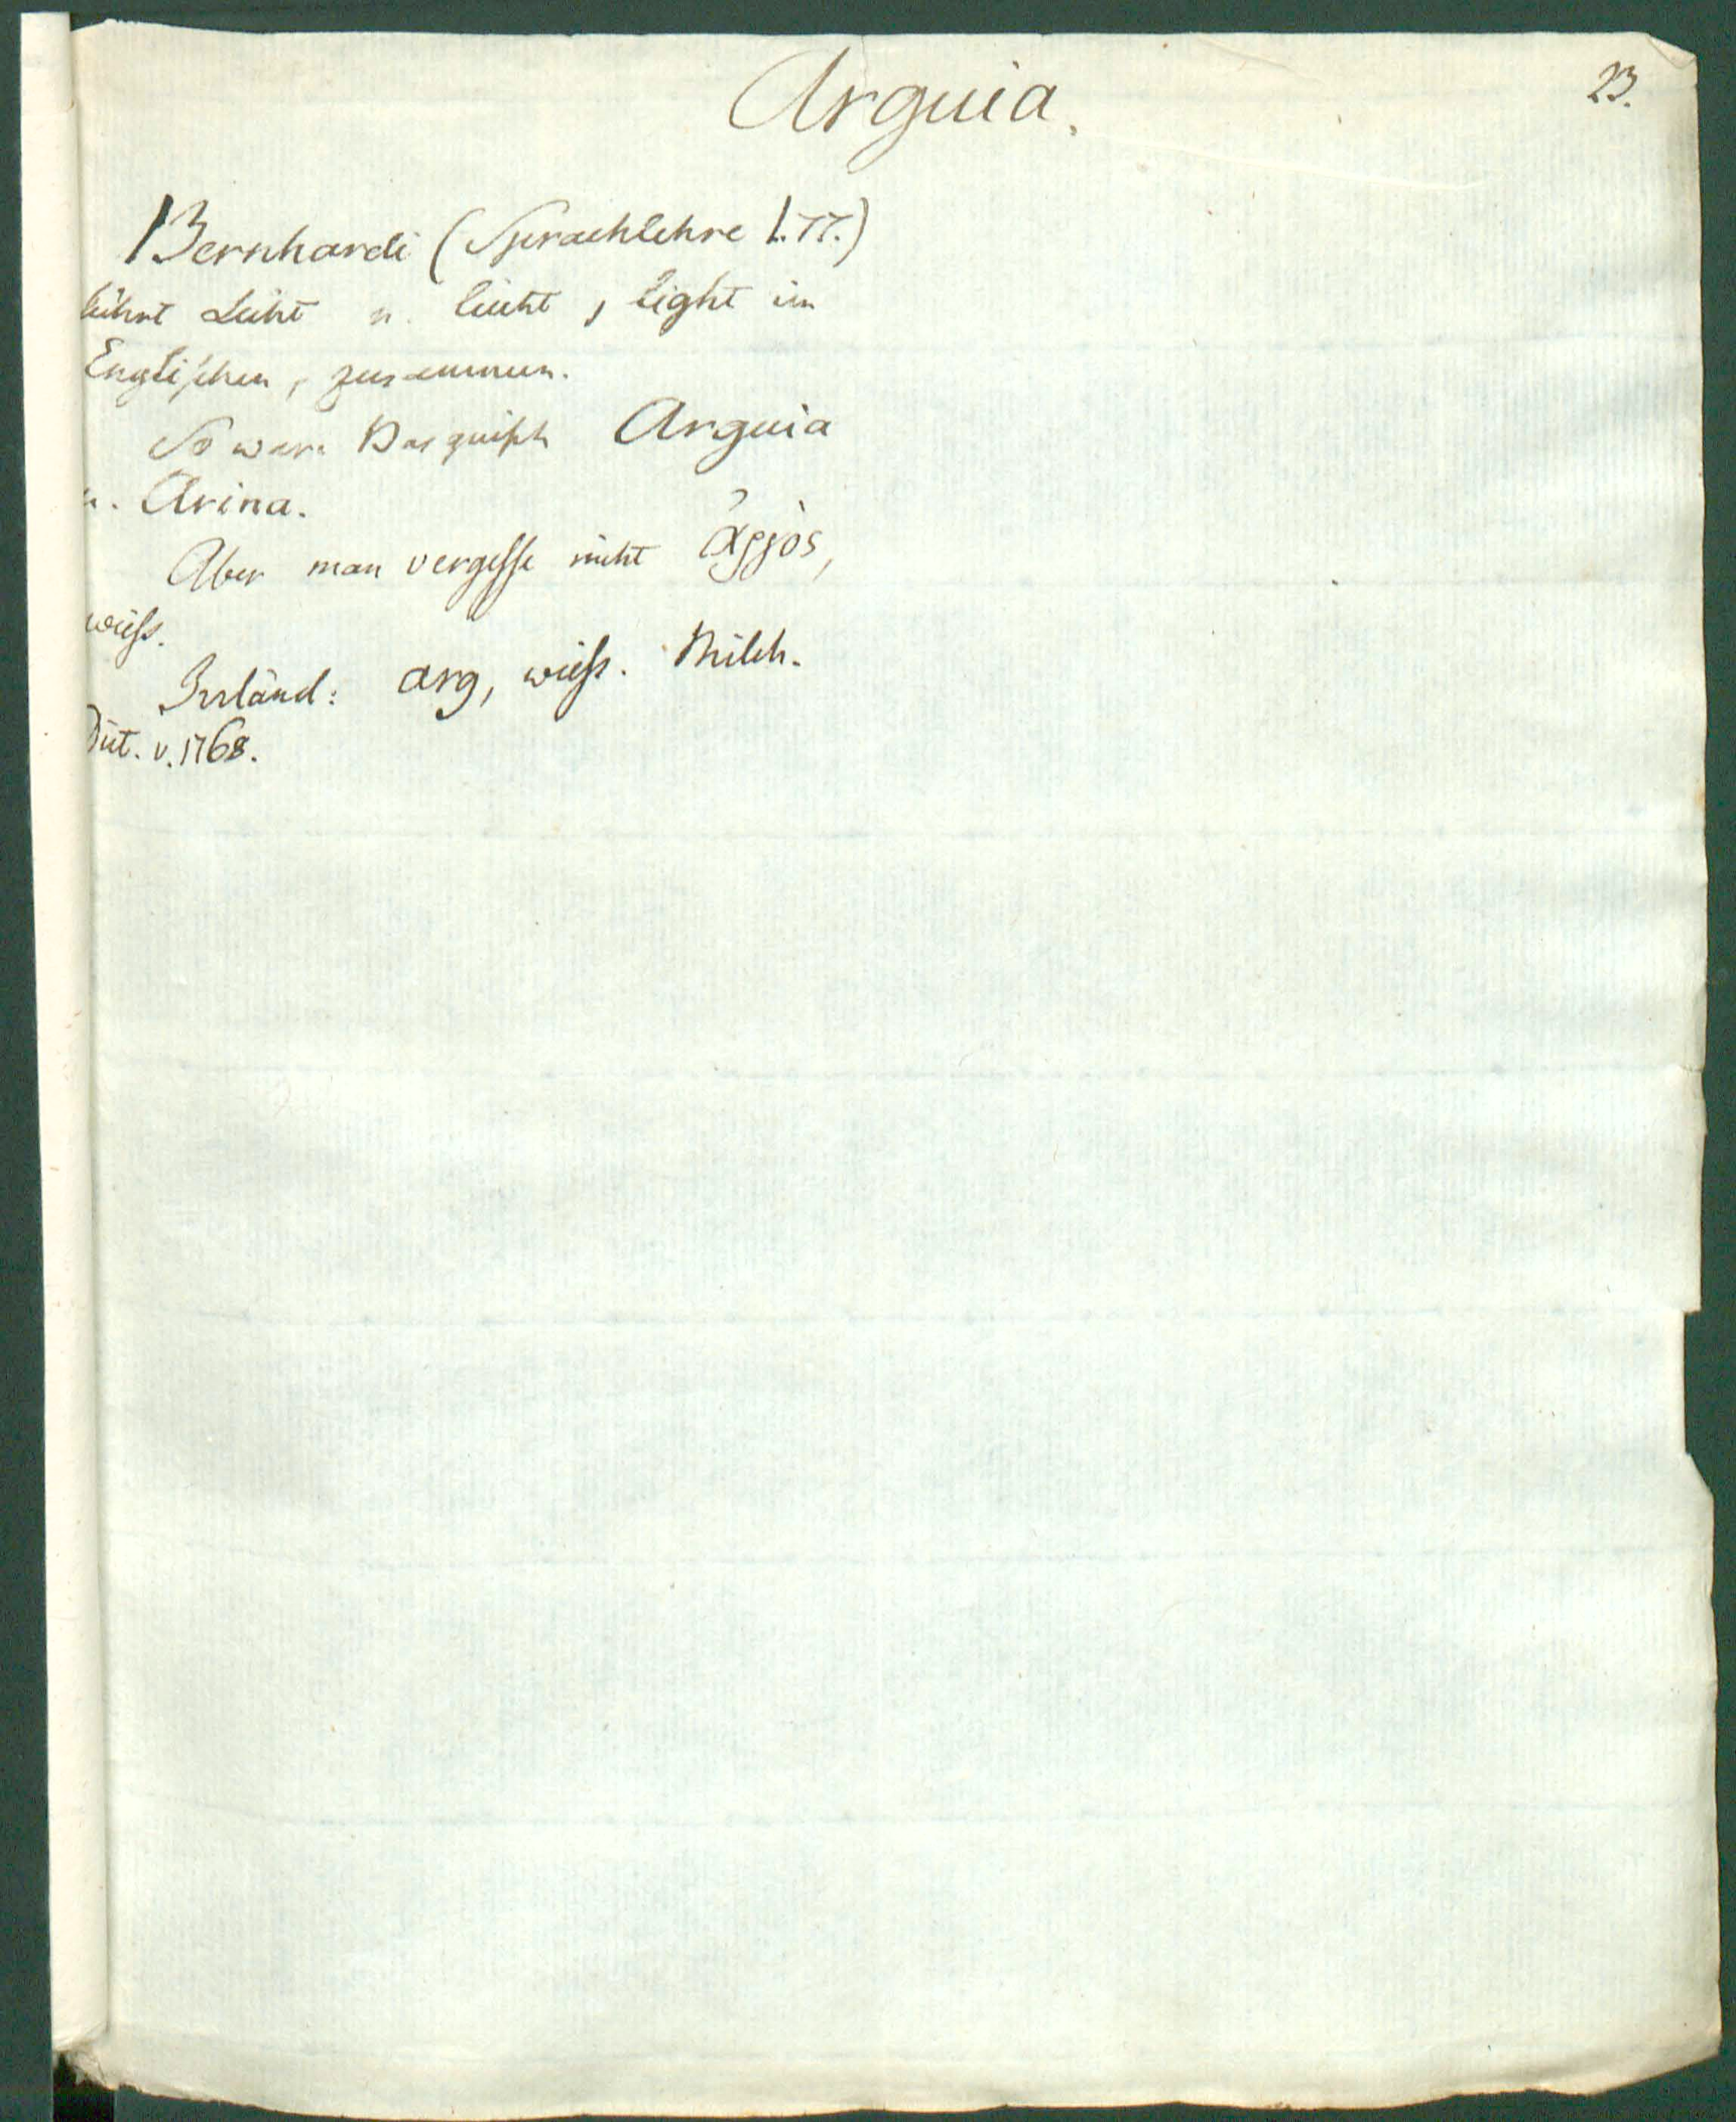 Arguia.
23.
Bernhardi (Sprachlehre 1. 77.)
führt Licht u. leicht, light im
Englischen, zusammen.
So wäre Basquisch Arguia
u. Arina.
Aber man vergesse nicht ἀργὸς,
weiss.
Irrländ: arg, weiss. Milch.
Dict. v. 1768.